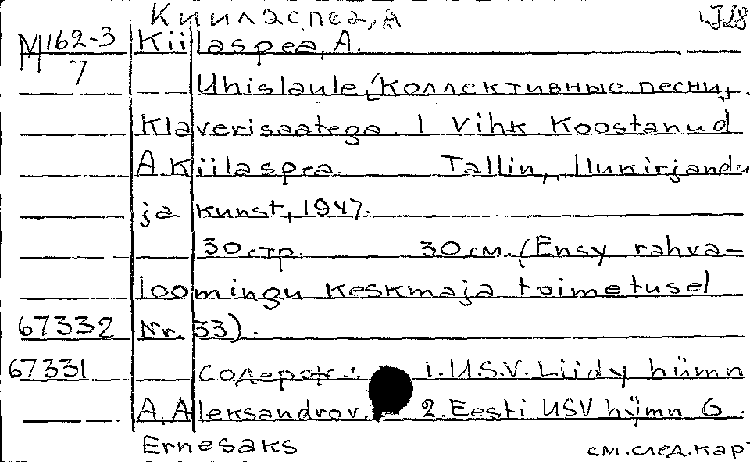 Кииласпеа, А
М 162-3 Kiilaspea, A.
7 Uhislaule, (Коллективные песни,
Klaverisaatega. I Vihk Koostanud
A. Kiilaspea. Tallin, Ilukirjandu
ja kunst, 1947.
30 стр. 30 см. (Ensy rahva-
loomingu keskmaja toimetusel
67332 Nr. 33).
67331 Содерж.: 1. U.S.V. Liidy hümn
A. Aleksandrov. 2. Eesti USV hümn G.
Ernesaks см. след. карт